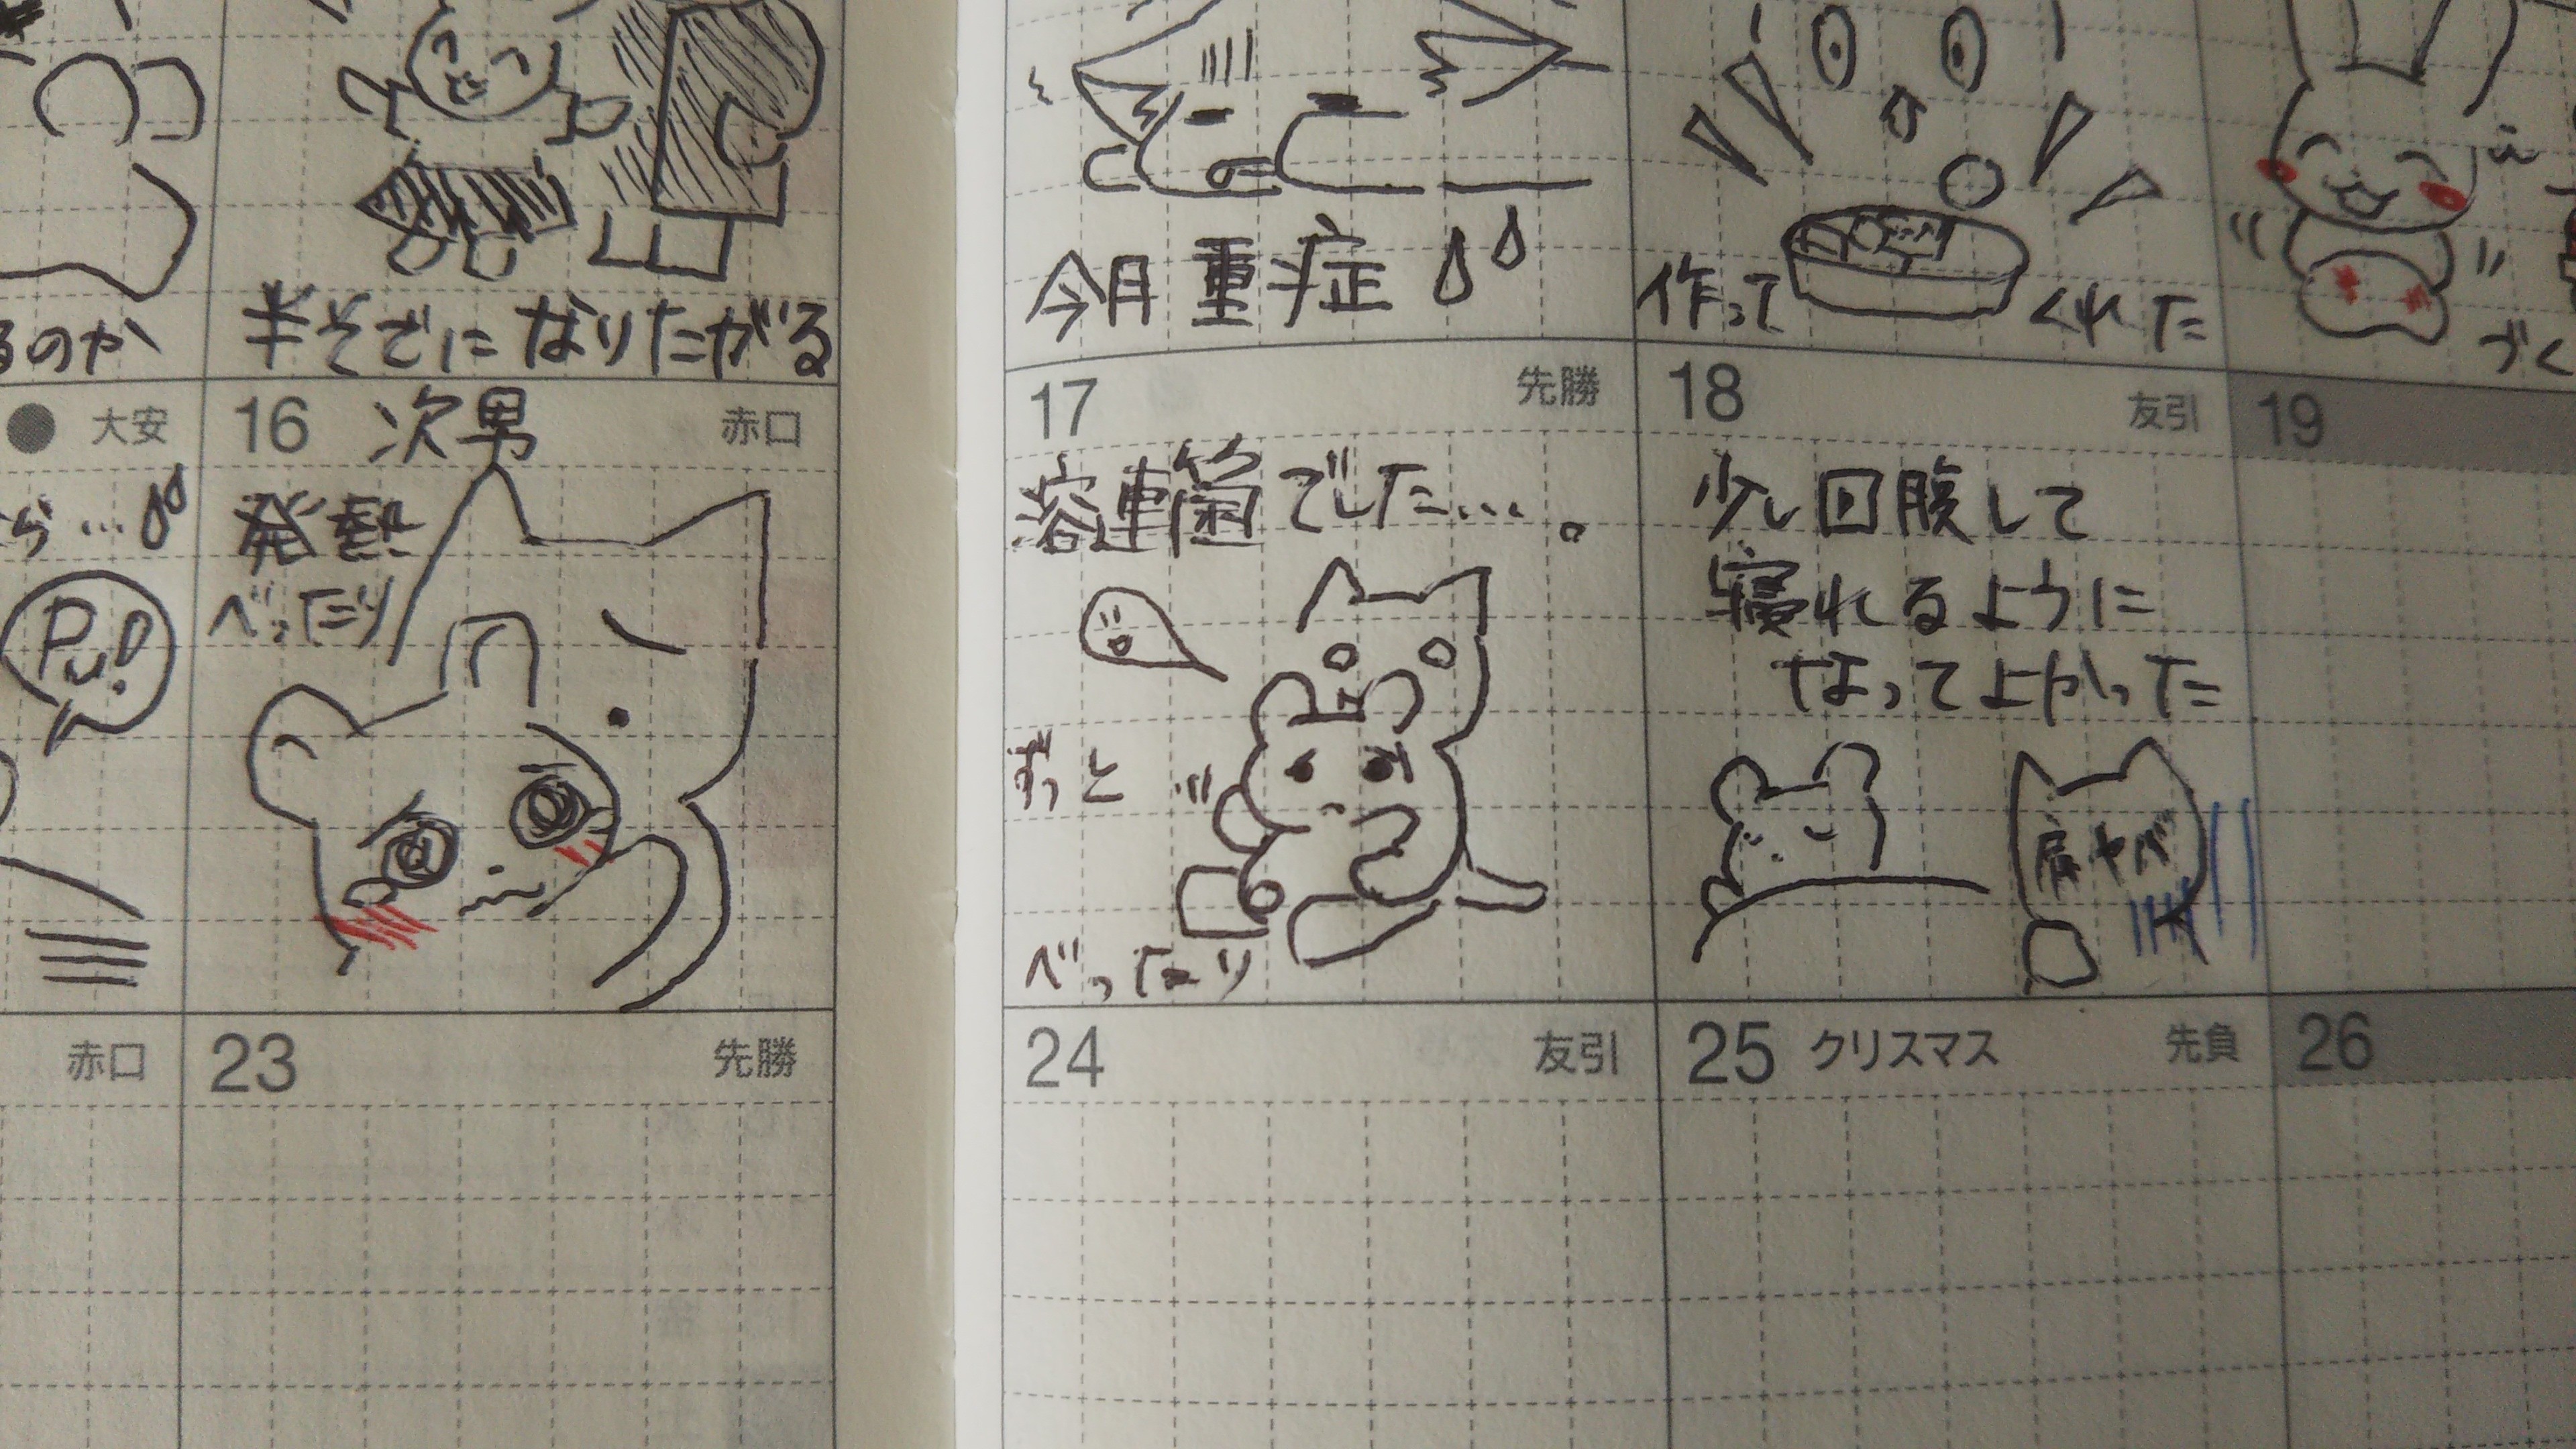 るのか
半そでになりたがる
今月重症
作って くれた
づく
大安
16 次男 赤口
ら…
発熱
べったり
Pu!
17 先勝
溶連菌でした…。
ずっと
べったり
18 友引
少し回腹して
寝れるように
なってよかった
肩ヤバ
19
赤口
23 先勝
24 友引
25 クリスマス 先負
26